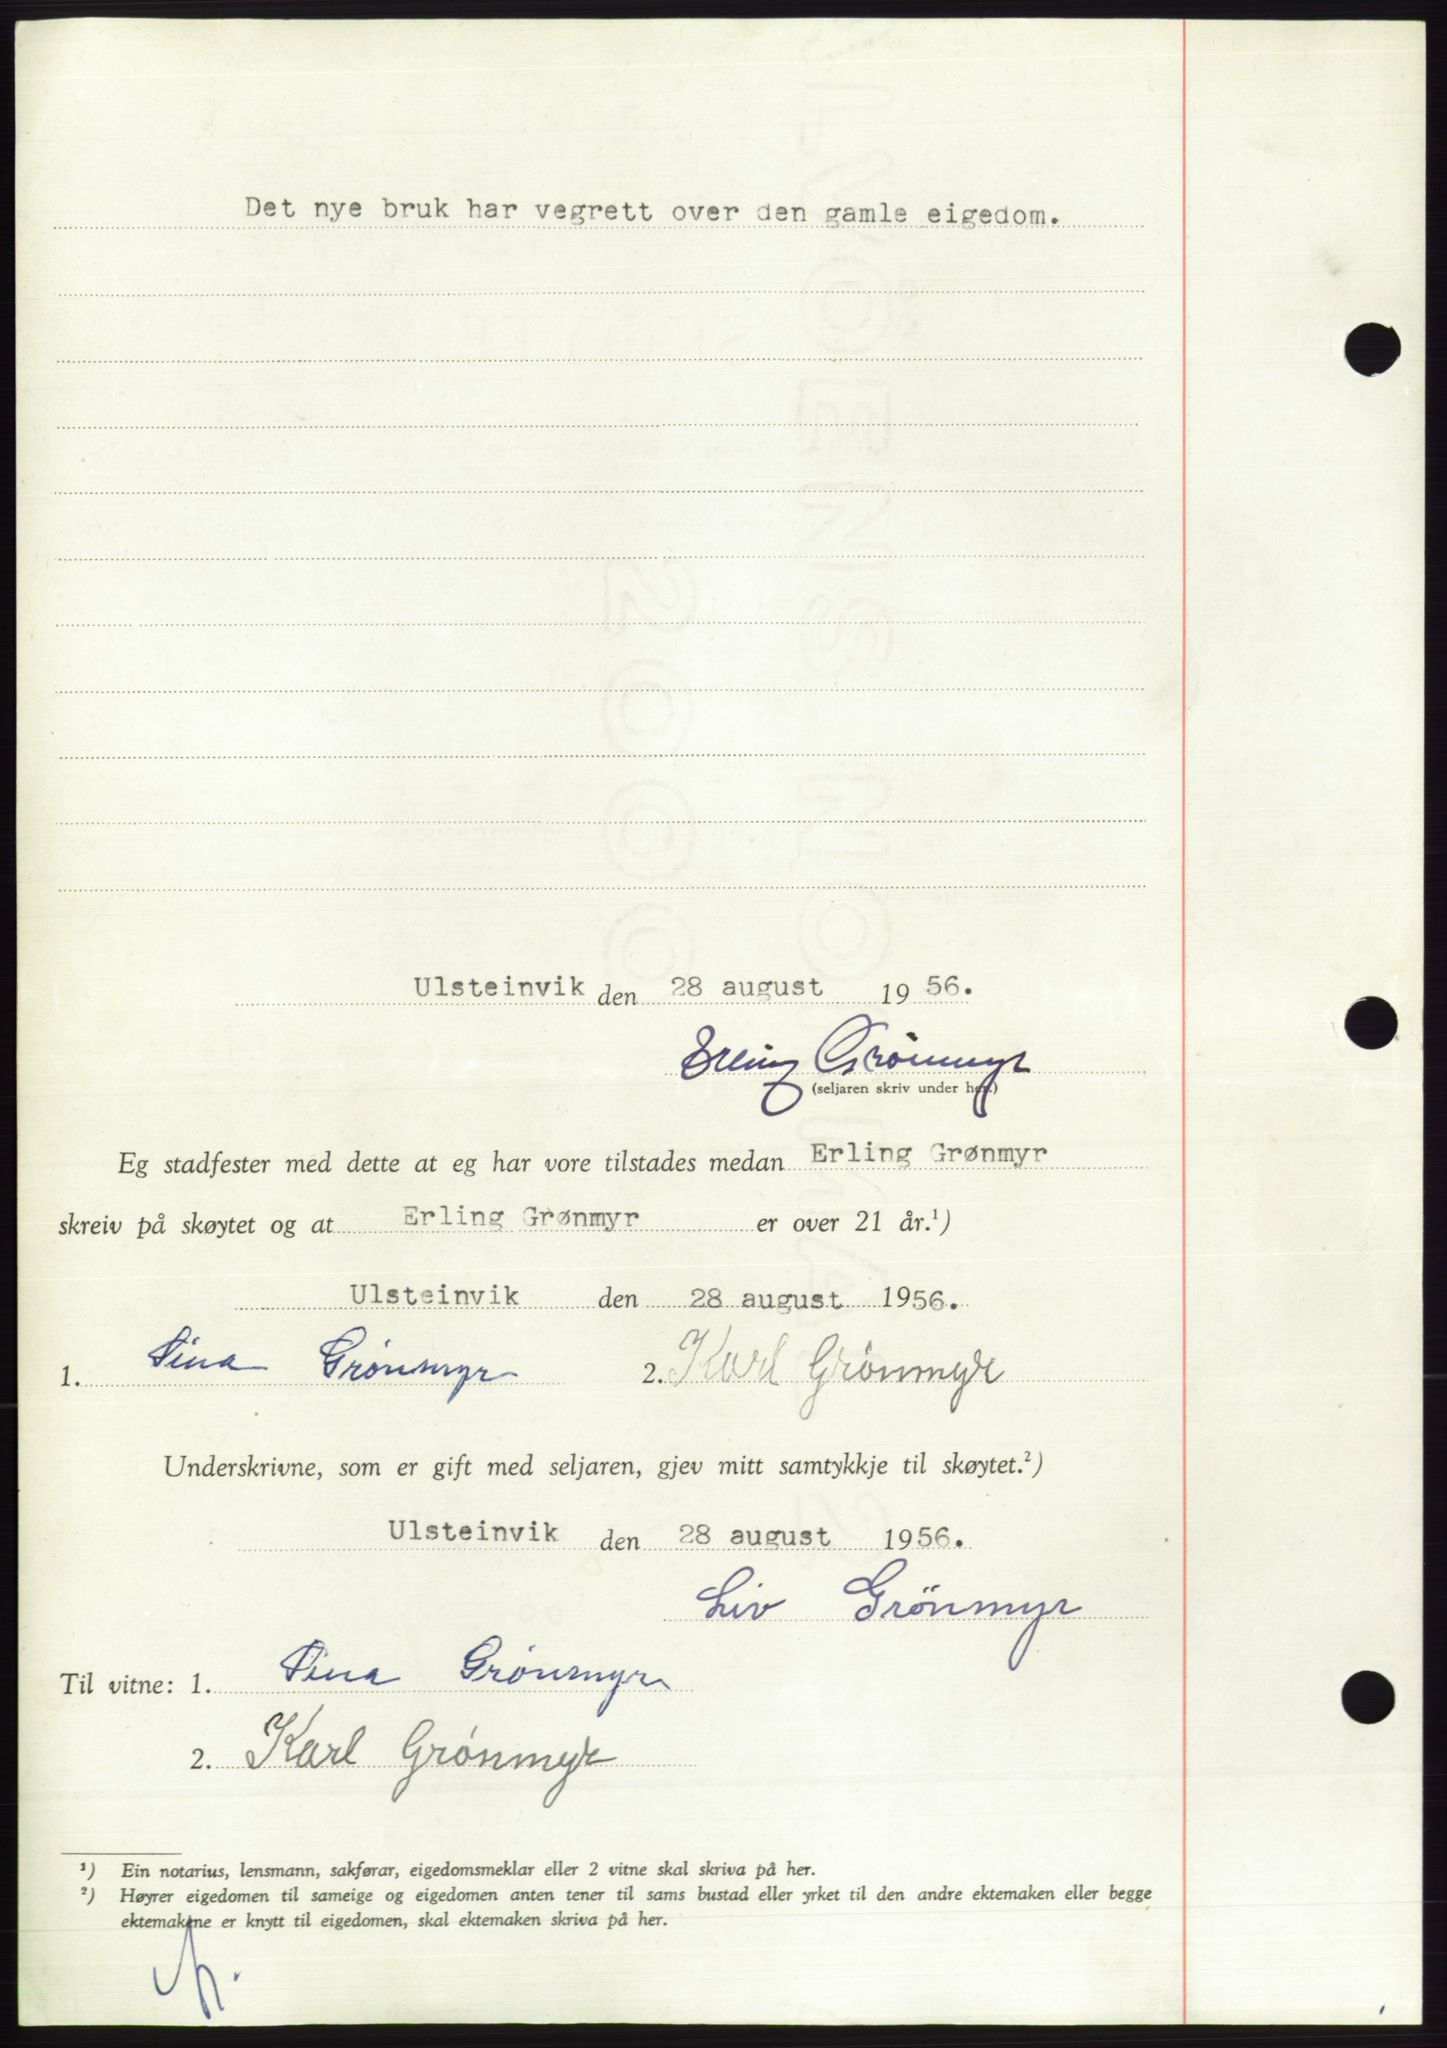 Det nye bruk har vegrett over den gamle eigedom.
Ulsteinvik den 28 august 1956.
Erling Grönmyr
(seljaren skriv under her.)
Eg stadfester med dette at eg har vore tilstades medan Erling Grønmyr
skreiv på skøytet og at Erling Grønmyr er over 21 år.¹)
Ulsteinvik den 28 august 1956.
1. Pina Grönmyr 2. Karl Grönmyr
Underskrivne, som er gift med seljaren, gjev mitt samtykkje til skøytet.²)
Ulsteinvik den 28 august 1956.
Liv Grönmyr
Til vitne: 1. Pina Grönmyr
2. Karl Grönmyr
¹) Ein notarius, lensmann, sakførar, eigedomsmeklar eller 2 vitne skal skriva på her.
²) Høyrer eigedomen til sameige og eigedomen anten tener til sams bustad eller yrket til den andre ektemaken eller begge
ektemakene er knytt til eigedomen, skal ektemaken skriva på her.